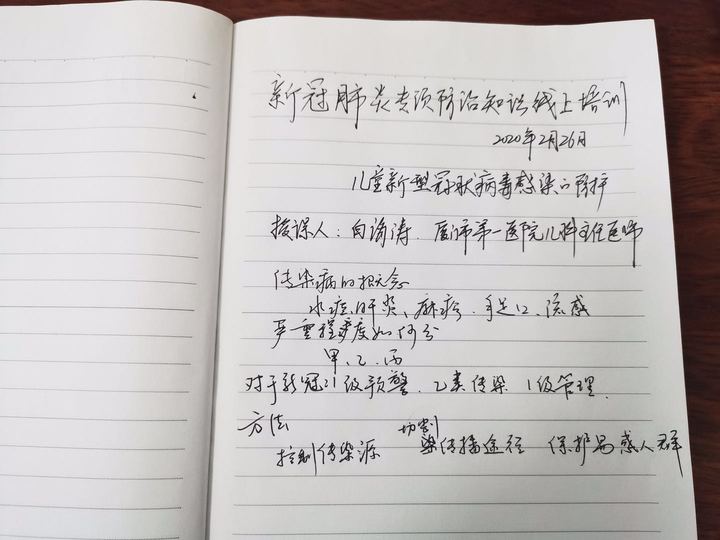 新冠肺炎专项防治知识线上培训
2020年2月26日
儿童新型冠状病毒感染的防护
授课人：白海涛. 厦门第一医院儿科主任医师
传染病的概念
水痘、肝炎、麻疹、手足口、流感
严重程度如何分
甲、乙、丙
对于新冠1级预警、乙类传染 1级管理.
方法 切割
控制传染源 传播途径 保护易感人群